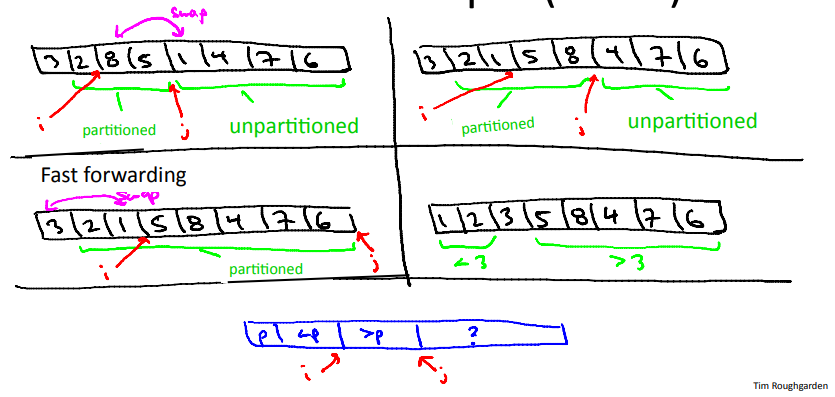 swap
3 2 8 5 1 4 7 6
i
partitioned
j
unpartitioned
3 2 1 5 8 4 7 6
i
partitioned
j
unpartitioned
Fast forwarding
swap
3 2 1 5 8 4 7 6
i
partitioned
j
1 2 3 5 8 4 7 6
<3
>3
p <p >p ?
i
j
Tim Roughgarden